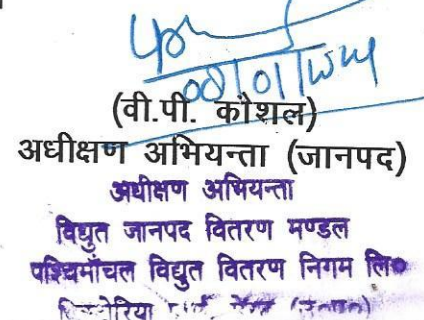 (वी.पी. कौशल)
अधीक्षण अभियन्ता (जानपद)
अधीक्षण अभियन्ता
विद्युत जानपद वितरण मण्डल
पश्चिमाँचल विद्युत वितरण निगम लि०